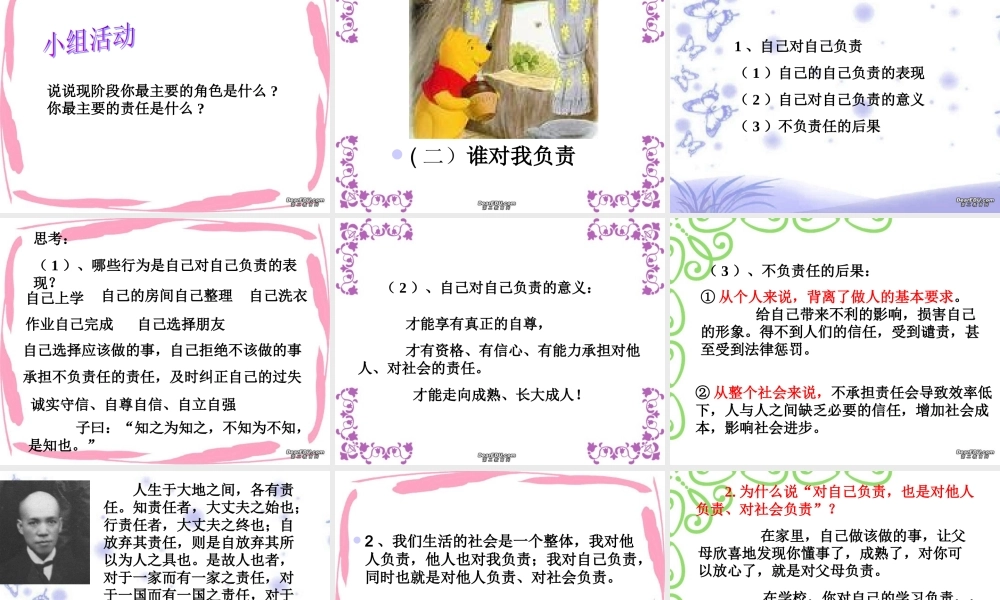 小组活动
说说现阶段你最主要的角色是什么？
你最主要的责任是什么？
(二）谁对我负责
1、自己对自己负责
（1）自己的自己负责的表现
（2）自己对自己负责的意义
（3）不负责任的后果
思考：
（1）、哪些行为是自己对自己负责的表
现？
自己上学 自己的房间自己整理 自己洗衣
作业自己完成 自己选择朋友
自己选择应该做的事，自己拒绝不该做的事
承担不负责任的责任，及时纠正自己的过失
诚实守信、自尊自信、自立自强
子曰：“知之为知之，不知为不知，
是知也。”
（2）、自己对自己负责的意义：
才能享有真正的自尊，
才有资格、有信心、有能力承担对他
人、对社会的责任。
才能走向成熟、长大成人！
（3）、不负责任的后果：
① 从个人来说，背离了做人的基本要求。
给自己带来不利的影响，损害自己
的形象。得不到人们的信任，受到谴责，甚
至受到法律惩罚。
② 从整个社会来说，不承担责任会导致效率低
下，人与人之间缺乏必要的信任，增加社会成
本，影响社会进步。
人生于大地之间，各有责
任。知责任者，大丈夫之始也；
行责任者，大丈夫之终也；自
放弃其责任，则是自放弃其所
以为人之具也。是故人也者，
对于一家而有一家之责任，对
于一国而有一国之责任，对于
2、我们生活的社会是一个整体，我对他
人负责，他人也对我负责；我对自己负责，
同时也就是对他人负责、对社会负责。
2. 为什么说“对自己负责，也是对他人
负责、对社会负责”？
在家里，自己做该做的事，让父
母欣喜地发现你懂事了，成熟了，对你可
以放心了，就是对父母负责。
在学校，你对自己的学习负责，